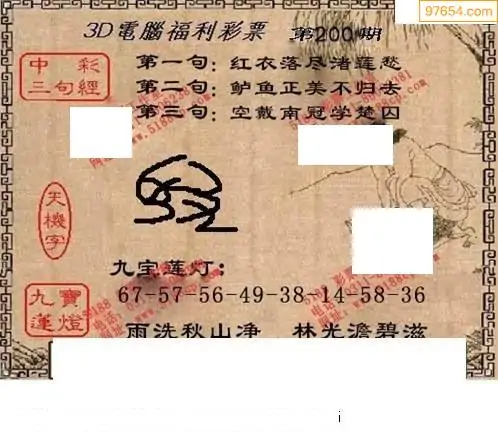 97654.com
3D電腦福利彩票 第200期
中彩
三句經
第一句：红衣落尽渚莲愁
第二句：鲈鱼正美不归去
第三句：空戴南冠学楚囚
天機字
九宝莲灯：
九寶
蓮燈
67-57-56-49-38-14-58-36
雨洗秋山净 林光澹碧滋
i